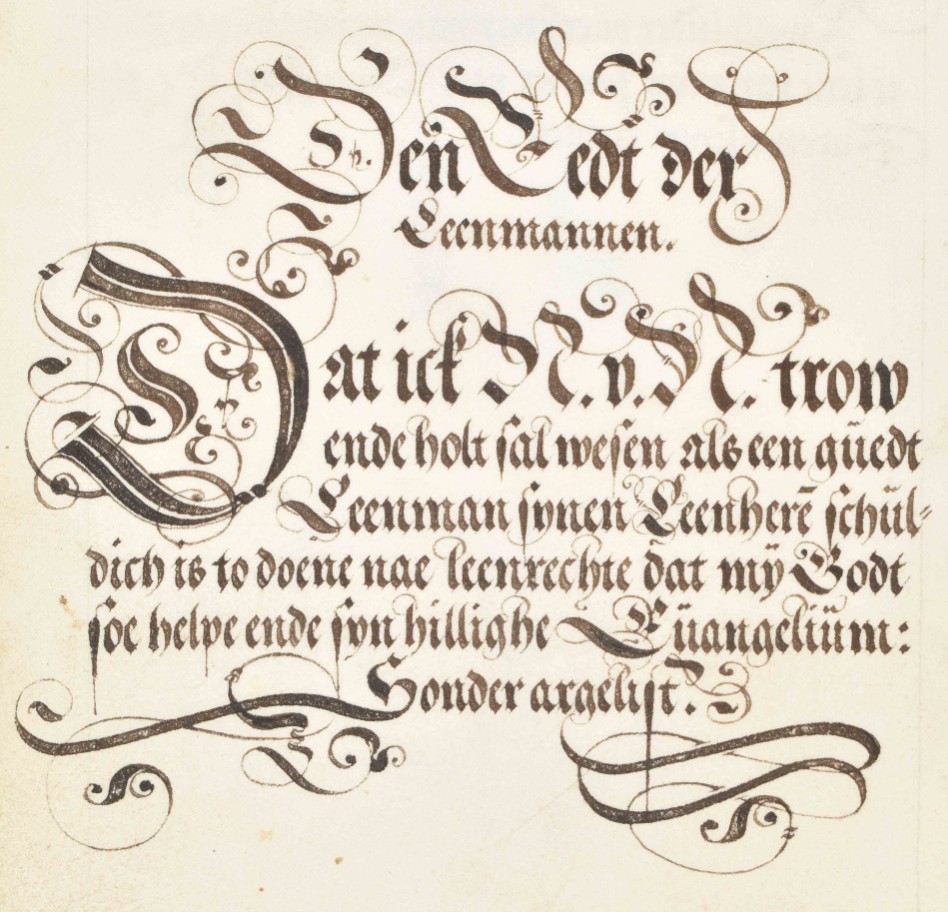 Den Eedt der
Leenmannen.
Dat ick N. v. N. trow
ende holt sal wesen als een güedt
Leenman synen Leenherē schül-
dich is to doene nae leenrechte dat mÿ Godt
soe helpe ende syn hillighe Eüangeliüm:
Sonder argelist.